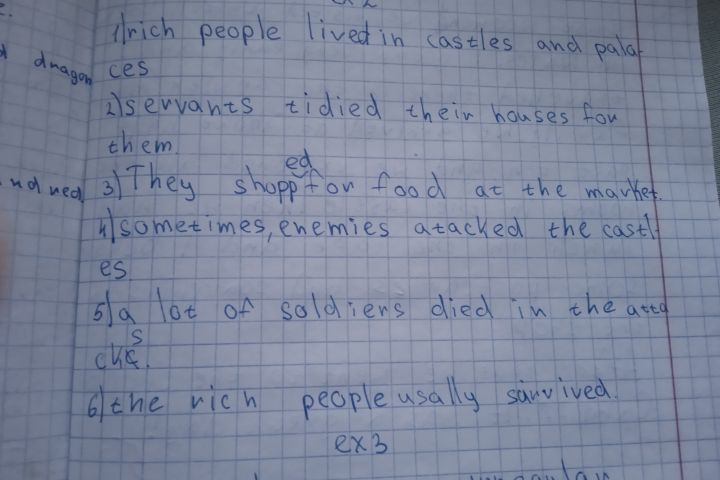 1) rich people lived in castles and pala
dragon ces
2) servants tidied their houses for
them.
ed
ned 3) They shopp for food at the market.
4) sometimes, enemies atacked the castl
es
5) a lot of soldiers died in the atta
s
cks.
6) the rich people usally survived.
ex3